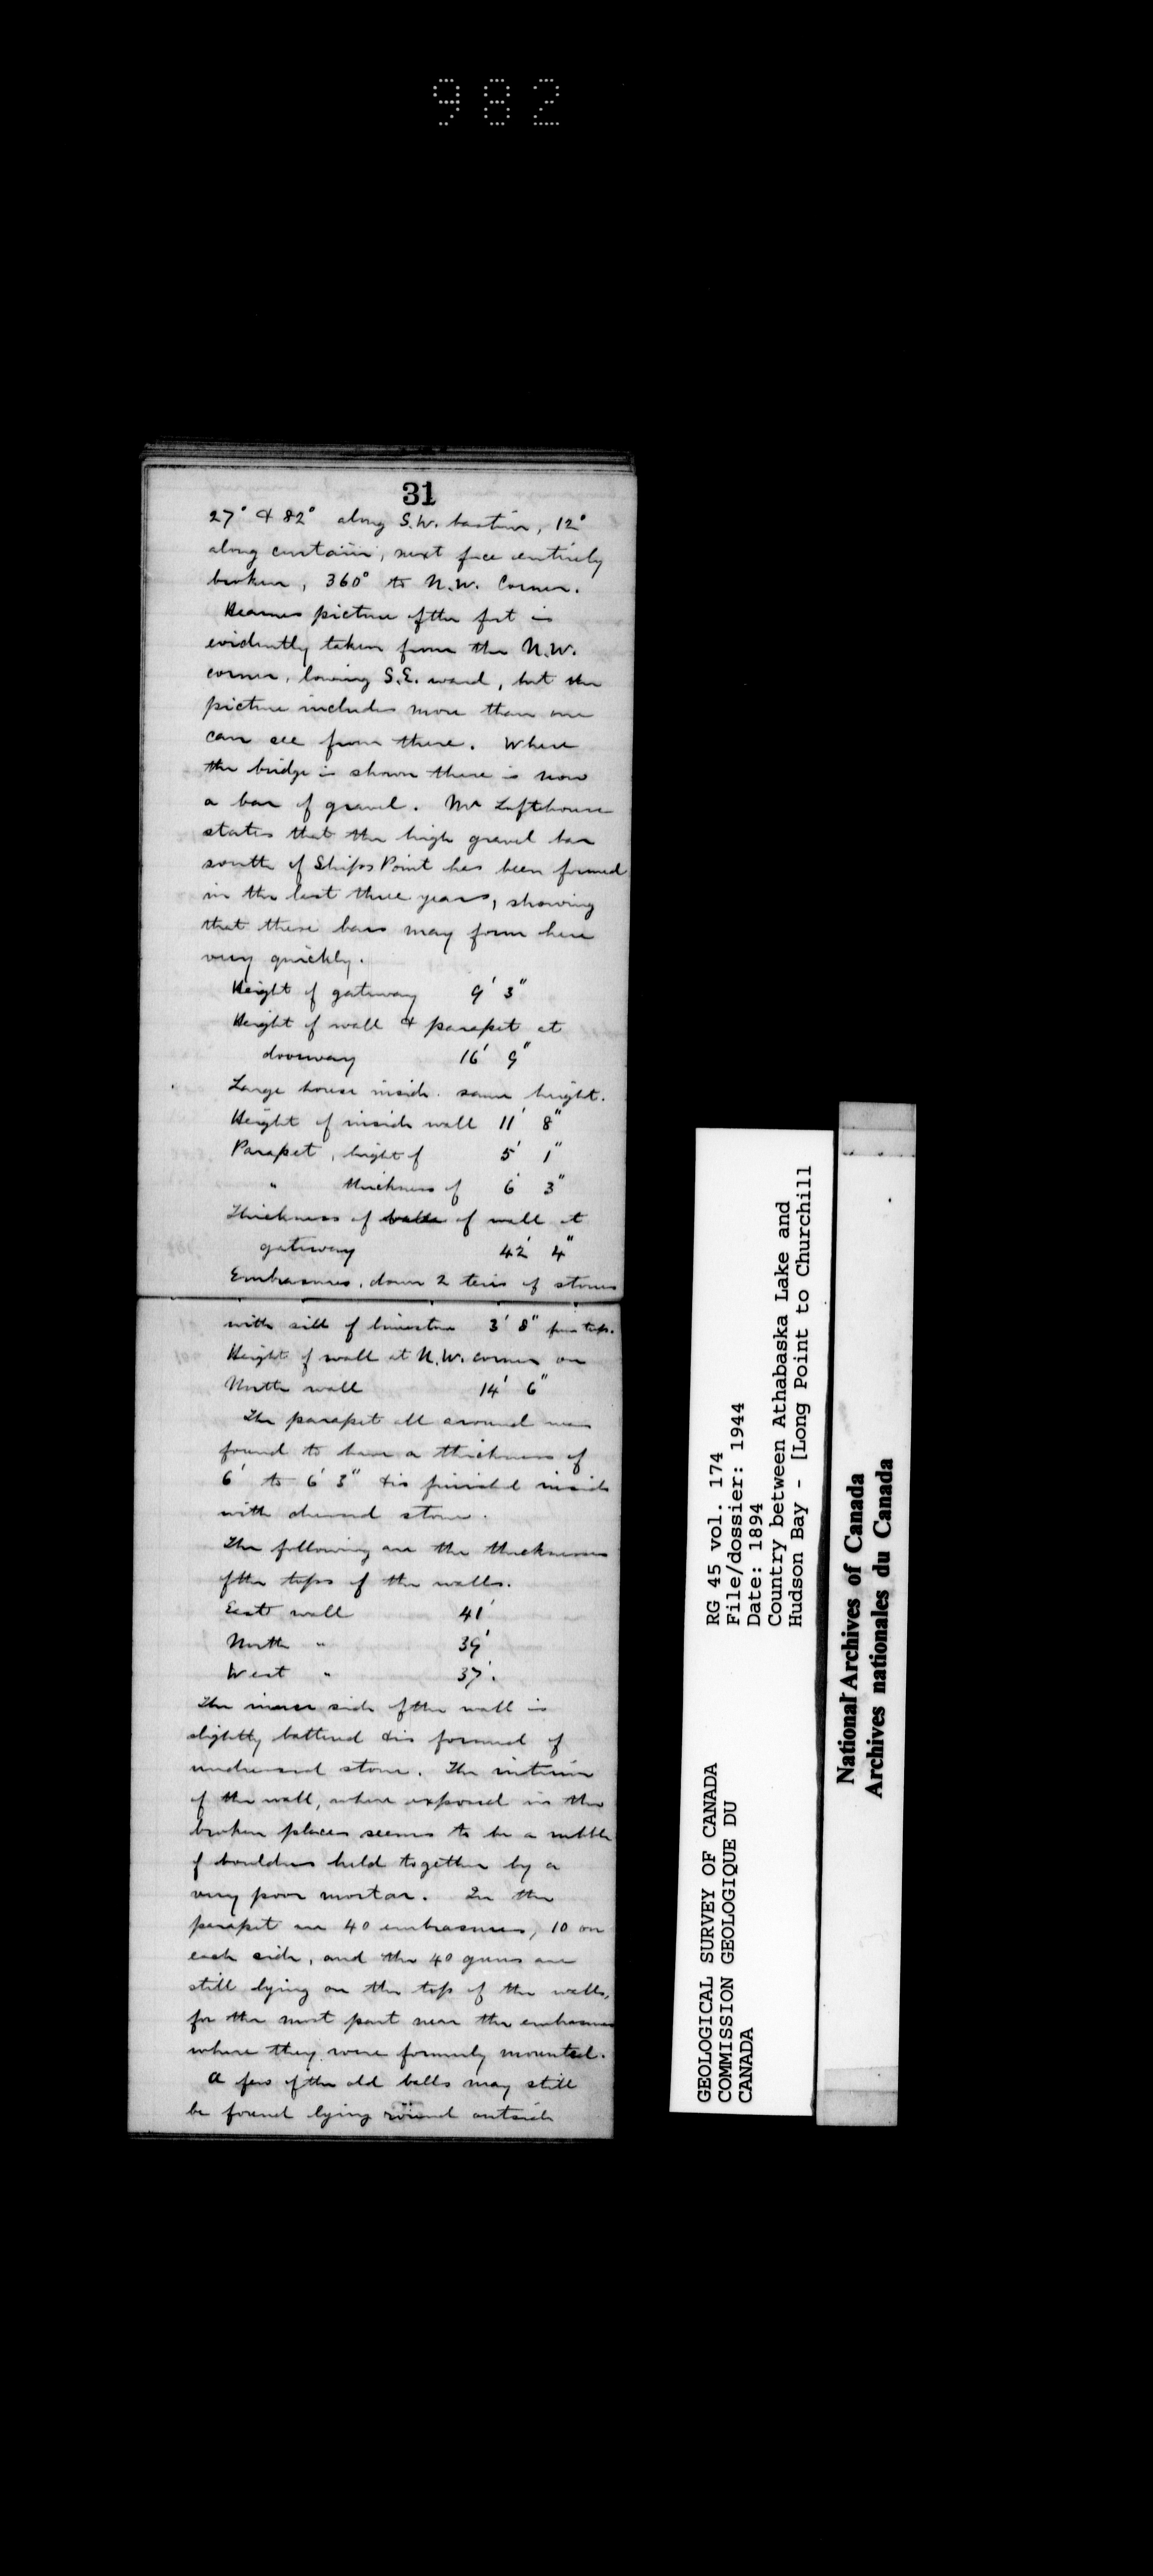 982
31
27° & 82° along S.W. bastion, 12°
along curtain, next face entirely
broken, 360° to N.W. Corner.
Hearnes picture of the fort is
evidently taken from the N.W.
corner, looking S.E. ward, but the
picture includes more than one
can see from there. Where
the bridge is shown there is now
a bar of gravel. Mr Lofthouse
states that the high gravel bar
south of Ships Point has been formed
in the last three years, showing
that these bars may form here
very quickly.
Height of gateway 9' 3"
Height of wall & parapet at
doorway 16' 9"
Large house inside same height.
Height of inside wall 11' 8"
Parapet, height of 5' 1"
" thickness of 6' 3"
Thickness of of wall at
gateway 42' 4"
Embrasures, down 2 tiers of stones
with sill of limestone 3' 8" from top.
Height of wall at N.W. corner on
North wall 14' 6"
The parapet all around was
found to have a thickness of
6' to 6' 3" & is finished inside
with dressed stone.
The following are the thicknesses
of the tops of the walls.
East wall 41'
North " 39'
West " 37'.
The inner side of the wall is
slightly battered & is formed of
undressed stone. The interior
of the wall, where exposed in the
broken places seems to be a rubble
of boulders held together by a
very poor mortar. In the
parapet are 40 embrasures, 10 on
each side, and the 40 guns are
still lying on the top of the walls,
for the most part near the embrasures
where they were formerly mounted.
A few of the old balls may still
be found lying round outside
GEOLOGICAL SURVEY OF CANADA
COMMISSION GEOLOGIQUE DU
CANADA
RG 45 vol. 174
File/dossier: 1944
Date: 1894
Country between Athabaska Lake and
Hudson Bay - [Long Point to Churchill
National Archives of Canada
Archives nationales du Canada